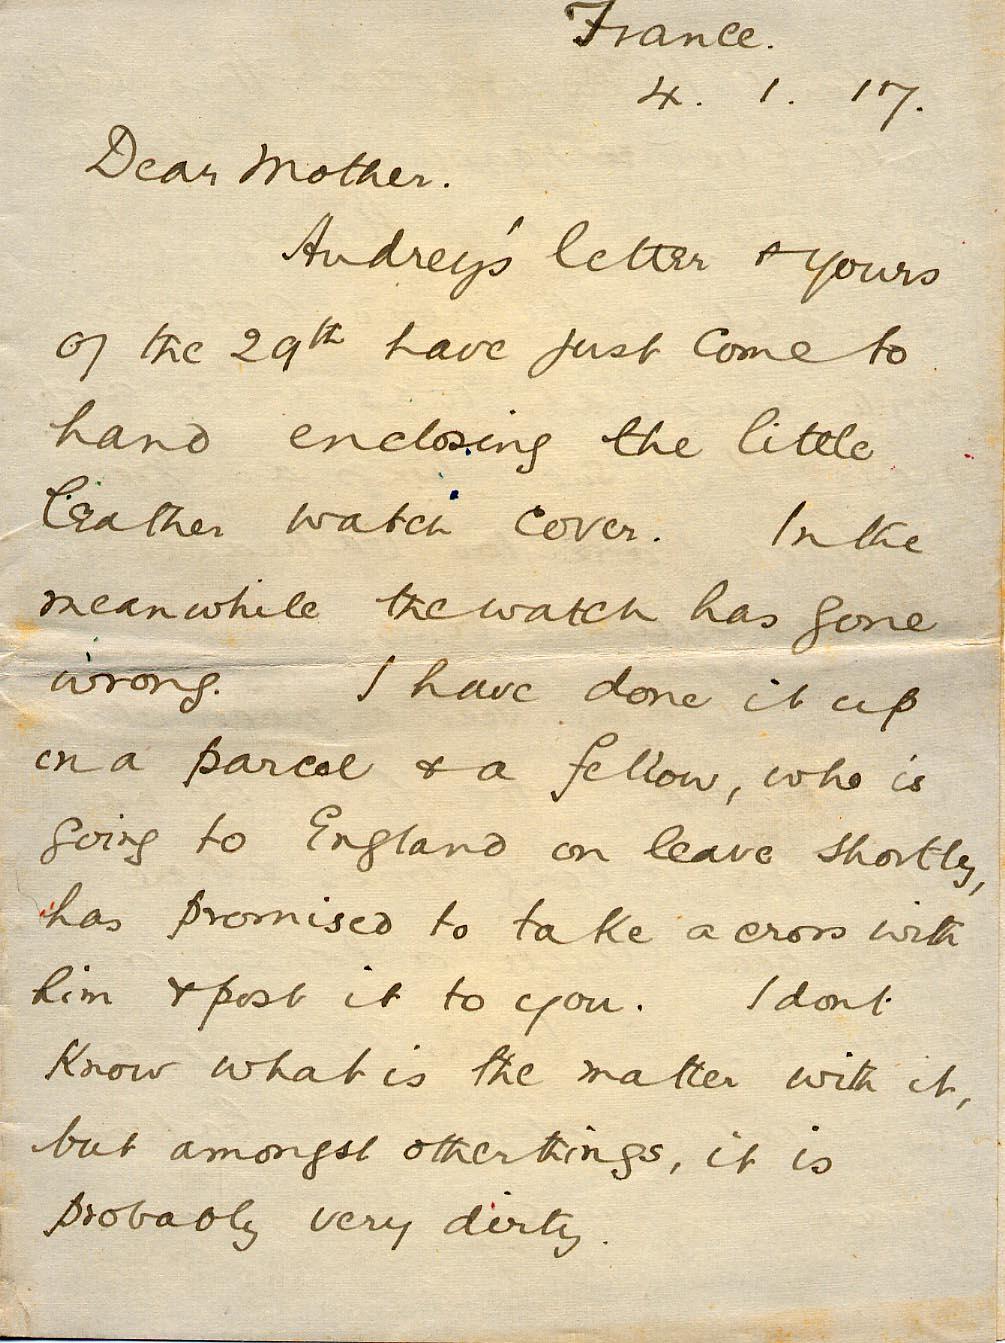 France.
4. 1. 17.
Dear Mother.
Audrey's letter & yours
of the 29th have just come to
hand enclosing the little
leather watch cover. In the
meanwhile the watch has gone
wrong. I have done it up
in a parcel & a fellow, who is
going to England on leave shortly,
has promised to take across with
him & post it to you. I dont
know what is the matter with it,
but amongst other things, it is
probably very dirty.